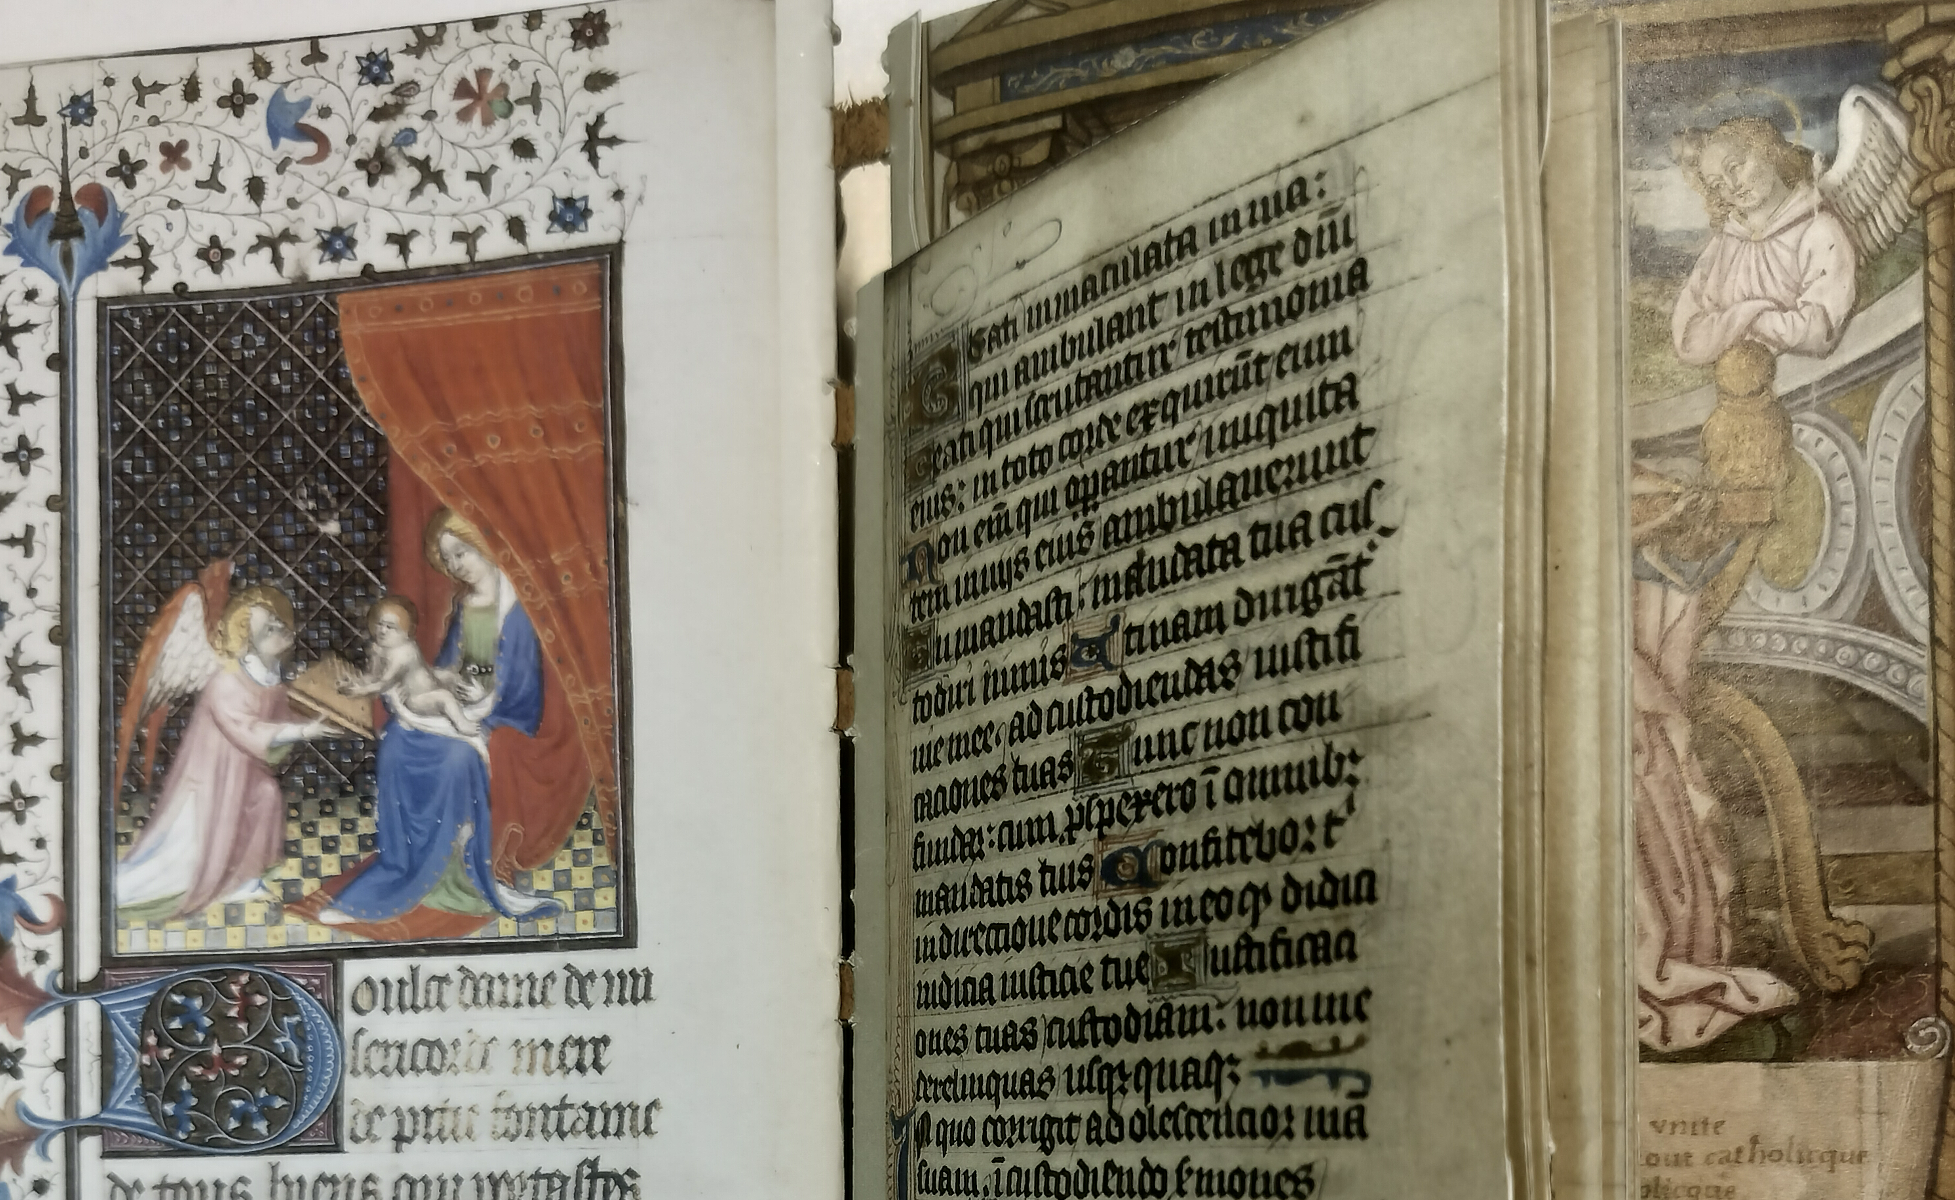 Doulce dame de mi
sericorde mere
de pitie fontaine
de tous biens qui portastes
Beati immaculata in uia:
qui ambulant in lege dñi
Beati qui scrutantur testimonia
eius: in toto corde exquirũt eum
Non em̃ qui opantur iniquita
tem in uijs eius ambulauerunt
Tu mandasti: mandata tua cus
todiri nimis Utinam dirigãt
uie mee: ad custodiendas iustifi
caciones tuas Tunc non con
fundar: cum pspexero ĩ omnibꝫ
mandatis tuis Confitebor t
in directione cordis in eo qꝫ didici
iudicia iusticie tue Iustificaci
ones tuas custodiam: non me
derelinquas usqꝫ quaqꝫ
In quo corrigit adolescencior uiã
suam: ĩ custodiendo sermones
vnite
out catholicque
olicque